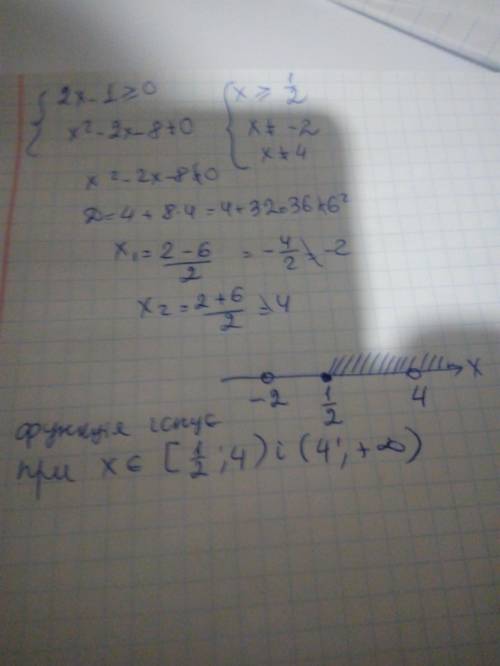 { 2x - 1 ≥ 0 { x ≥ 1/2
x² - 2x - 8 ≠ 0 x ≠ -2
x ≠ 4
x² - 2x - 8 ≠ 0
D = 4 + 8·4 = 4 + 32 = 36 = 6²
x₁ = (2 - 6)/2 = -4/2 = -2
x₂ = (2 + 6)/2 = 4
-2 1/2 4 x
функція існує
при x ∈ [1/2; 4) і (4; +∞)